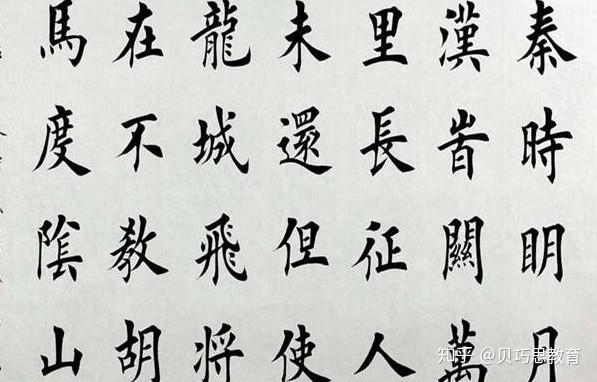 秦時眀月
漢旹關萬
里長征人
未還但使
龍城飛將
在不教胡
馬度陰山
知乎 @贝巧思教育